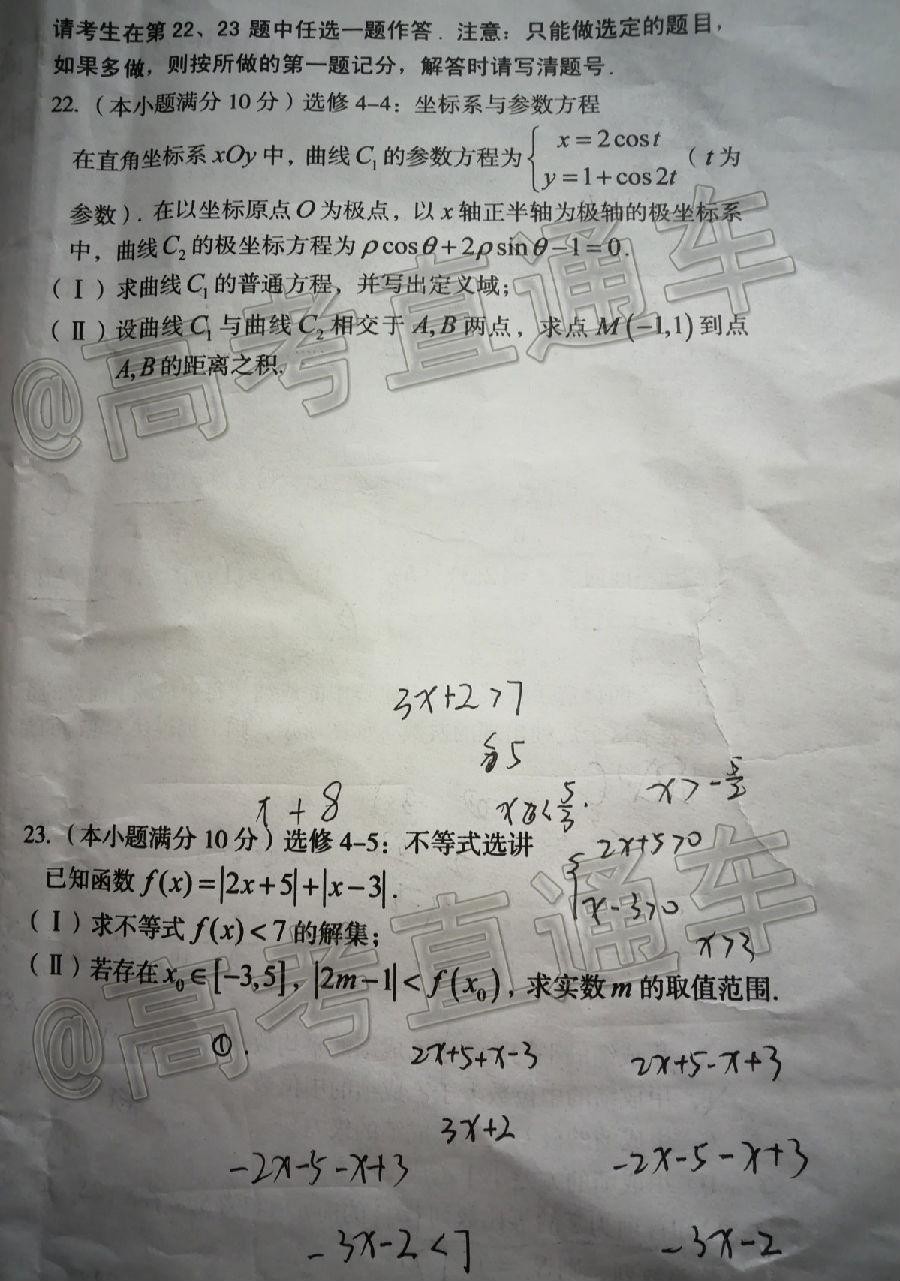 请考生在第 22、23 题中任选一题作答．注意：只能做选定的题目，
如果多做，则按所做的第一题记分，解答时请写清题号．
22.（本小题满分 10 分）选修 4–4：坐标系与参数方程
在直角坐标系 xOy 中，曲线 C₁ 的参数方程为 { x=2cost
y=1+cos2t （t 为
参数）. 在以坐标原点 O 为极点，以 x 轴正半轴为极轴的极坐标系
中，曲线 C₂ 的极坐标方程为 ρcosθ+2ρsinθ−1=0.
（Ⅰ）求曲线 C₁ 的普通方程，并写出定义域；
（Ⅱ）设曲线 C₁ 与曲线 C₂ 相交于 A,B 两点，求点 M(−1,1) 到点
A,B 的距离之积.
@高考直通车
3x+2>7
5
x<5/3. x>-5/2
x+8
23.（本小题满分 10 分）选修 4–5：不等式选讲
2x+5>0
已知函数 f(x)=|2x+5|+|x−3|.
x-3>0
（Ⅰ）求不等式 f(x)<7 的解集；
x>3
（Ⅱ）若存在 x₀∈[−3,5]，|2m−1|<f(x₀)，求实数 m 的取值范围.
@高考直通车
①. 2x+5+x-3 2x+5-x+3
3x+2
-2x-5-x+3 -2x-5-x+3
-3x-2<7 -3x-2